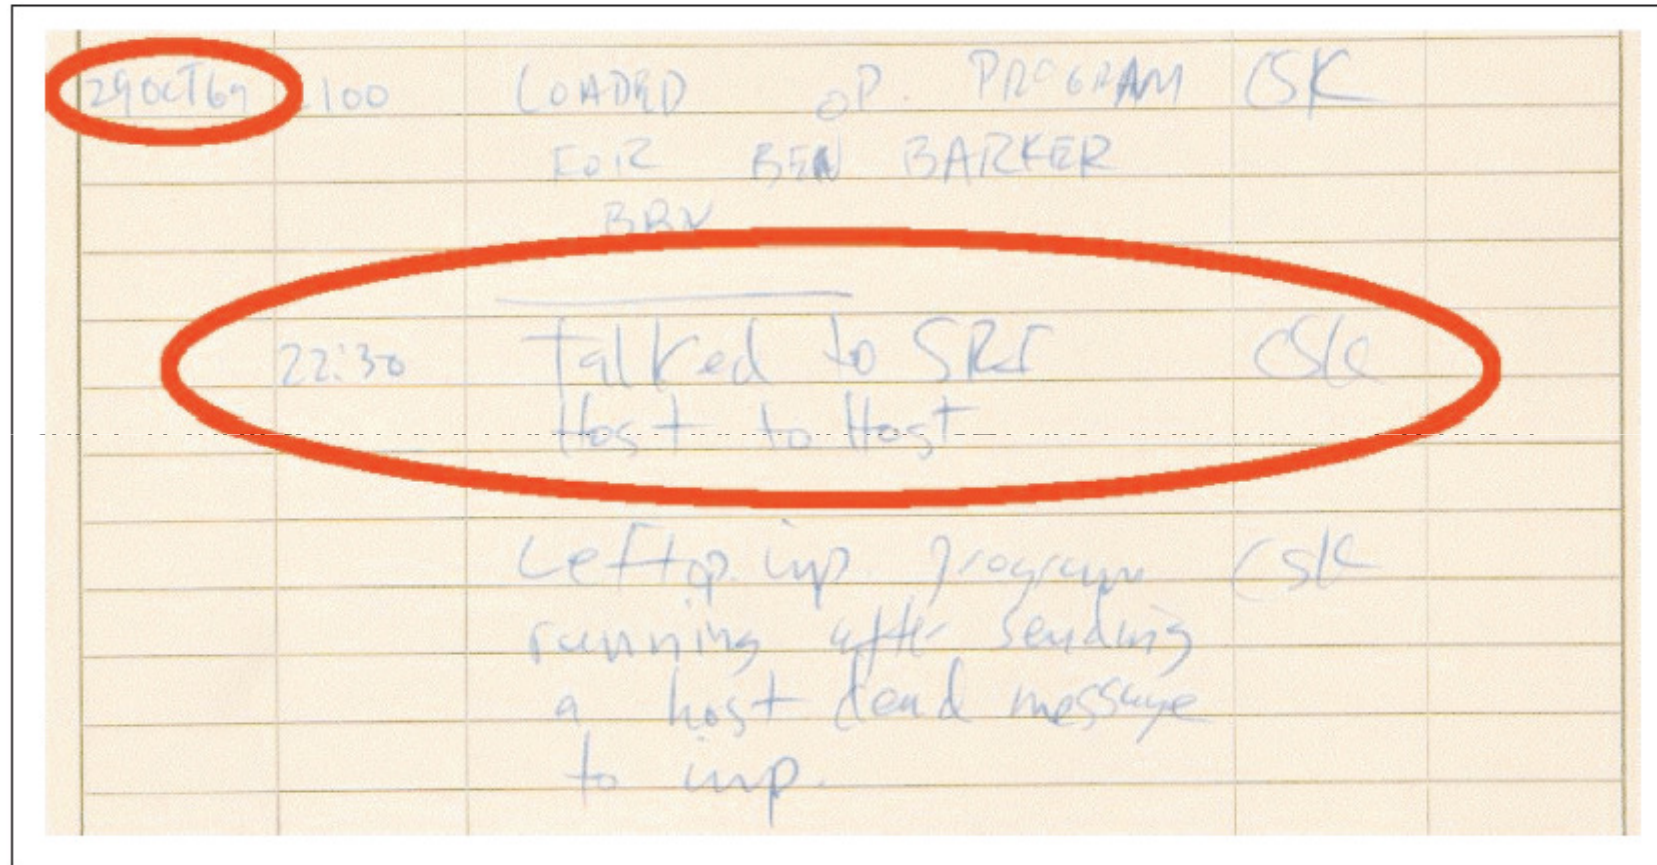 29OCT69 100 LOADED OP. PROGRAM CSK
FOR BEN BARKER
BBN
22:30 Talked to SRI CSK
Host to Host
Left op. imp. program CSK
running after sending
a host dead message
to imp.